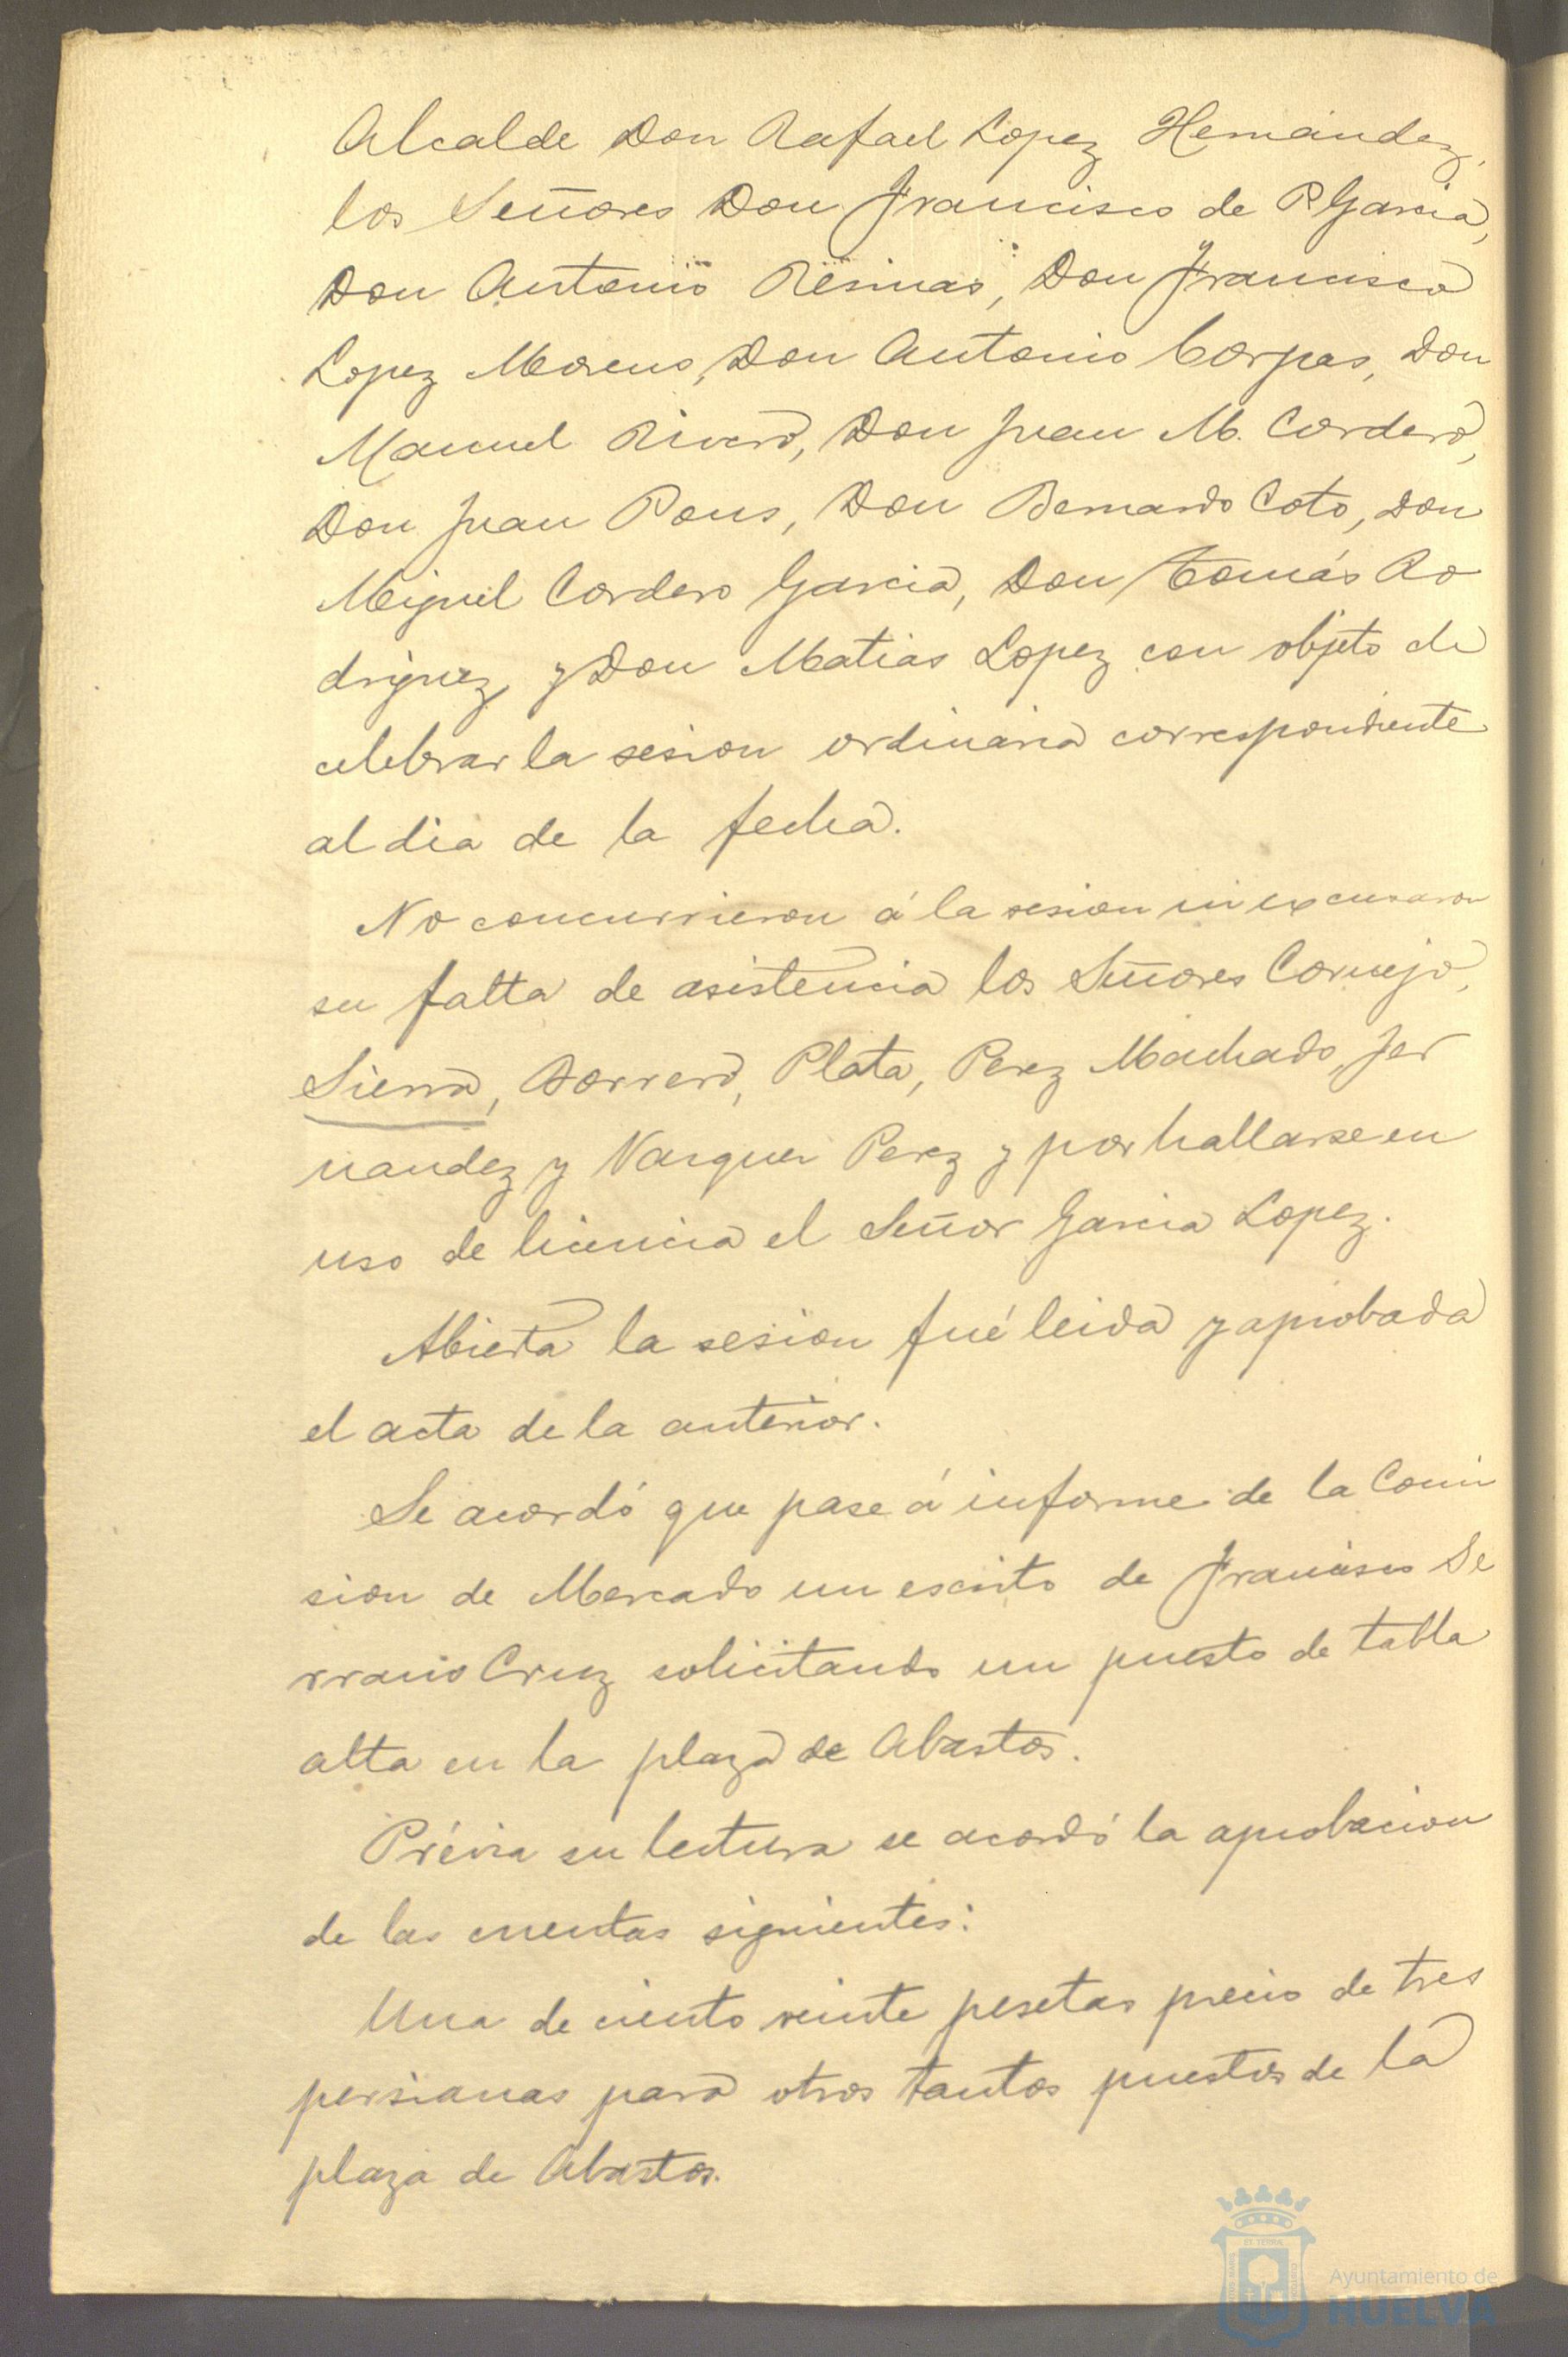 Alcalde Don Rafael Lopez Hernández,
los Señores Don Francisco de P. Garcia,
Don Antonio Resinas, Don Francisco
Lopez Moreno, Don Antonio Corpas, Don
Manuel Rivero, Don Juan M. Cordero,
Don Juan Pons, Don Bernardo Coto, Don
Miguel Cordero Garcia, Don Tomás Ro
driguez, y Don Matias Lopez con objeto de
celebrar la sesion ordinaria correspondiente
al dia de la fecha.
No concurrieron á la sesion ni excusaron
su falta de asistencia los Señores Cornejo,
Sierra, Borrero, Plata, Perez Machado, Fer
nandez y Vazquez Perez y por hallarse en
uso de licencia el Señor Garcia Lopez.
Abierta la sesion fué leida y aprobada
el acta de la anterior.
Se acordó que pase á informe de la Comi
sion de Mercado un escrito de Francisco Se
rrano Cruz solicitando un puesto de tabla
alta en la plaza de Abastos.
Prévia su lectura se acordó la aprobacion
de las cuentas siguientes:
Una de ciento veinte pesetas precio de tres
persianas para otros tantos puestos de la
plaza de Abastos.
Ayuntamiento de
HUELVA